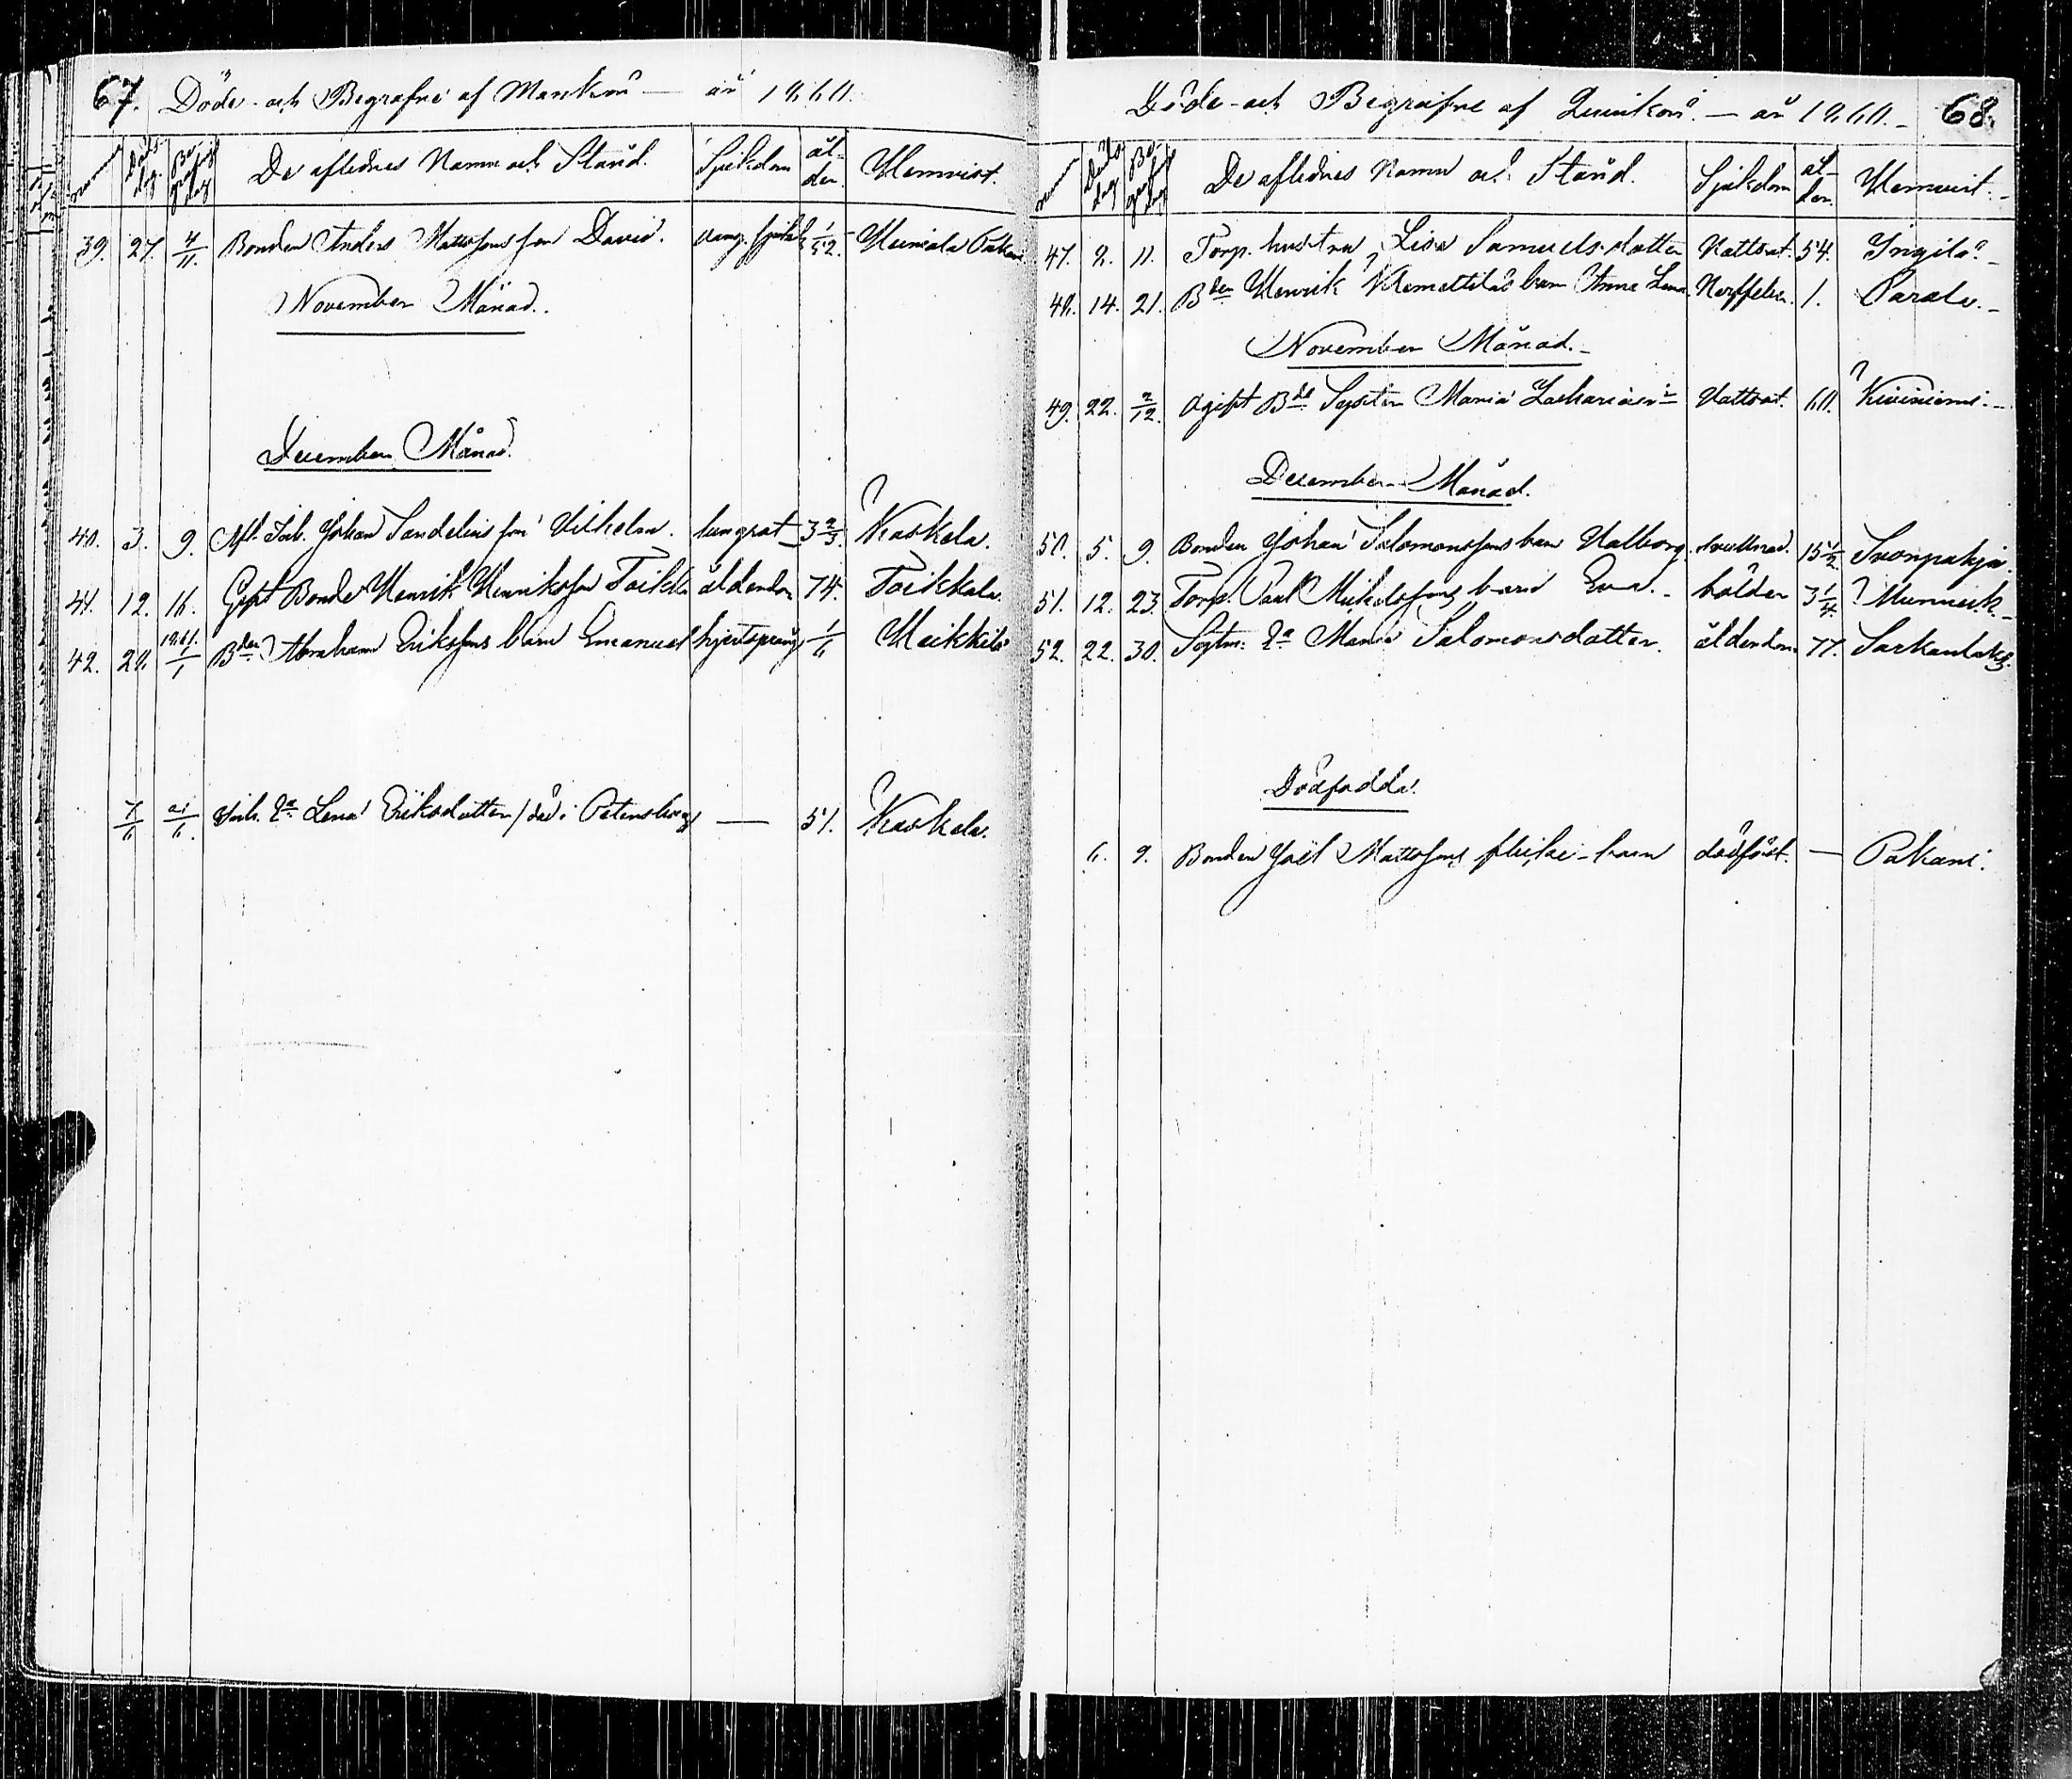 67. Döde- och Begrafne af Mankön — år 1860.
Döds-dag. Be-grafnings dag De aflednes Namn och Stånd. Sjukdom ål-der. Hemvist.
39. 27. 4/11. Bonden Anders Mattssons son David. 1/52.
November Månad.
December Månad.
40. 3. 9. Johan Sandelius son Vilhelm. lungsot 3 2/3. Kaskala.
41. 12. 16. Gift Bonde Henrik Henriksson Toikka ålderdom 74. Toikkala.
42. 28. 1861. 1/1 Bden Abraham Erikssons barn Emanuel hjertsprång 1/6 Heikkilä
7/6 21/6. Inh. Ea Lena Eriksdotter / död i Petersburg — 51. Kaskala.
Döde- och Begrafne af Qvinkön. — år 1860. — 68.
Döds dag Be-grafnings dag De aflednes Namn och Stånd. Sjukdom ål-der. Hemvist.
47. 8. 11. Torp. hustru Lisa Samuelsdotter Vattsot. 54. Ingilä
48. 14. 21. Bden Henrik Klemettiläs barn Anna Lena 1. Parala.
November Månad.
49. 22. 2/12. Ogift Bde Syster Maria Vattsot. 60. Kiviniemi.
December Månad.
50. 5. 9. Bonden Johan Salomonssons barn Valborg. 15 1/2 Suonpohja.
51. 12. 23. Torp. Paul Michelssons barn Eva. hålder 3 1/4.
52. 22. 30. Ea Maria Salomonsdotter. ålderdom 77. Sarkanlaks.
Dödfödda.
6. 9. Bonden Joël Mattssons flicke-barn dödfödt. — Pakani.